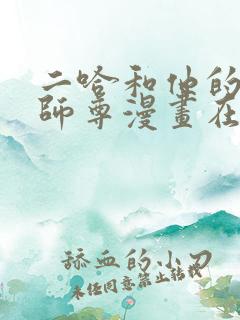 二哈和他的
師尊漫畫在
舔血的小刀
未经同意禁止转载